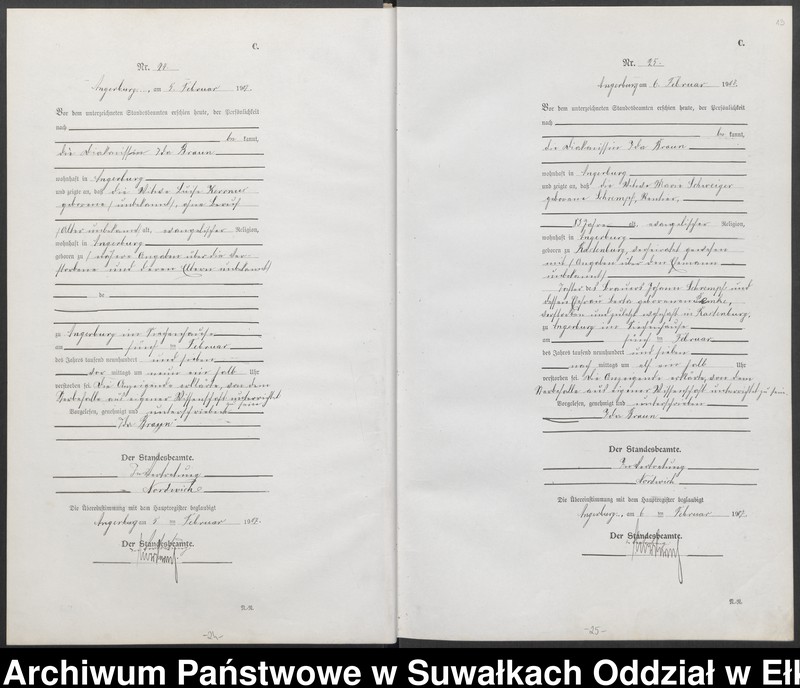 C.
Nr. 24
Angerburg, am 5. Februar 1907.
Vor dem unterzeichneten Standesbeamten erschien heute, der Persönlichkeit
nach
be kannt,
die Diakonissin Ida Braun
wohnhaft in Angerburg
und zeigte an, daß die Witwe Luise
geborene (unbekannt), ohne Beruf
(Alter unbekannt) alt, evangelischer Religion,
wohnhaft in Angerburg
geboren zu (nähere Angaben über die Ver-
storbene und deren Eltern unbekannt)
de
zu Angerburg im Siechenhause
am fünf ten Februar
des Jahres tausend neunhundert und sieben
vor mittags um neun ein halb Uhr
verstorben sei. Die Anzeigende erklärte, von dem
Sterbefalle aus eigener Wissenschaft unterrichtet
zu sein
Vorgelesen, genehmigt und unterschrieben
Ida Braun
Der Standesbeamte.
In Vertretung
Die Übereinstimmung mit dem Hauptregister beglaubigt
Angerburg am 5 ten Februar 1907.
Der Standesbeamte.
N.-R.
-24-
C.
Nr. 25.
Angerburg am 6. Februar 1907.
Vor dem unterzeichneten Standesbeamten erschien heute, der Persönlichkeit
nach
be kannt,
die Diakonissin Ida Braun
wohnhaft in Angerburg
und zeigte an, daß die Witwe Marie Schweiger
geborene Schrempf, Rentiere,
Jahre alt, evangelischer Religion,
wohnhaft in Angerburg
geboren zu Rastenburg, verheiratet gewesen
mit (Angaben über den Ehemann
unbekannt)
Tochter des Brauers Johann Schrempf und
dessen Ehefrau geborenen
verstorben und zuletzt wohnhaft in Rastenburg,
zu Angerburg im Siechenhause
am fünf ten Februar
des Jahres tausend neunhundert und sieben
nach mittags um elf ein halb Uhr
verstorben sei. Die Anzeigende erklärte, von dem
Sterbefalle aus eigener Wissenschaft unterrichtet zu sein.
Vorgelesen, genehmigt und unterschrieben
Ida Braun
Der Standesbeamte.
In Vertretung
Die Übereinstimmung mit dem Hauptregister beglaubigt
Angerburg, am 6 ten Februar 1907.
Der Standesbeamte.
N.-R.
-25-
Archiwum Państwowe w Suwałkach Oddział w Ełk